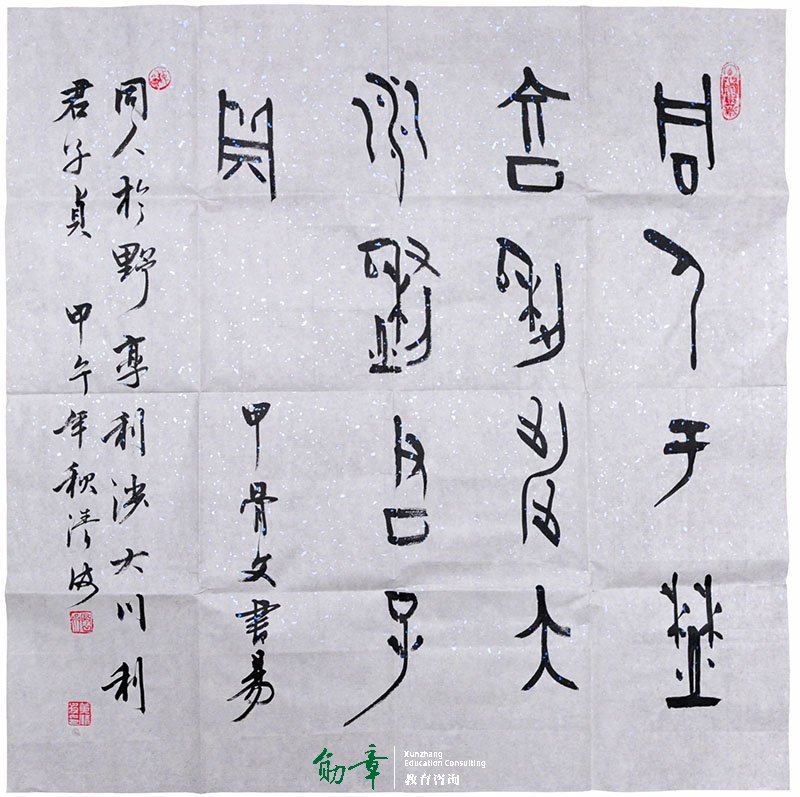 同人于野
亨利涉大
川利君子
貞
甲骨文書易
同人於野亨利涉大川利
君子貞 甲午年秋清海
勋章
Xunzhang
Education Consulting
教育咨询